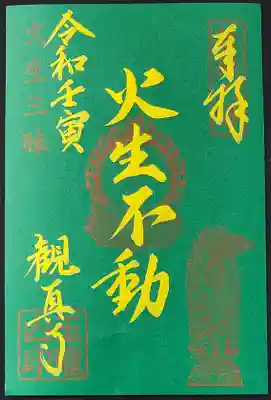 奉拝
火生不動
令和壬寅
火生三昧
観真寺